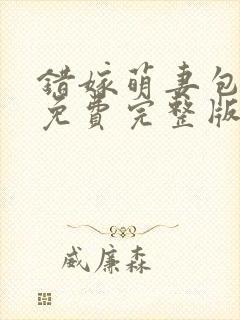 错嫁萌妻包
免费完整版
威廉森